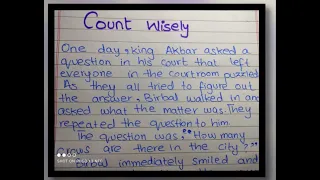 Count Wisely
One day, king Akbar asked a
question in his court that left
everyone in the courtroom puzzled
As they all tried to figure out
the answer, Birbal walked in and
asked what the matter was. They
repeated the question to him
The question was, "How many
crows are there in the city?"
Birbal immediately smiled and